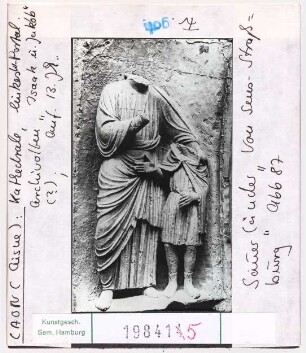 LAON (Aisne): Kathedrale, linkes Portal.
Archivolten „Isaak u. Jakob"
(?); Auf. 13. Jh.
Sauerländer „Von Sens-Straß=
burg" Abb 87
Kunstgesch.
Sem. Hamburg
198411,5